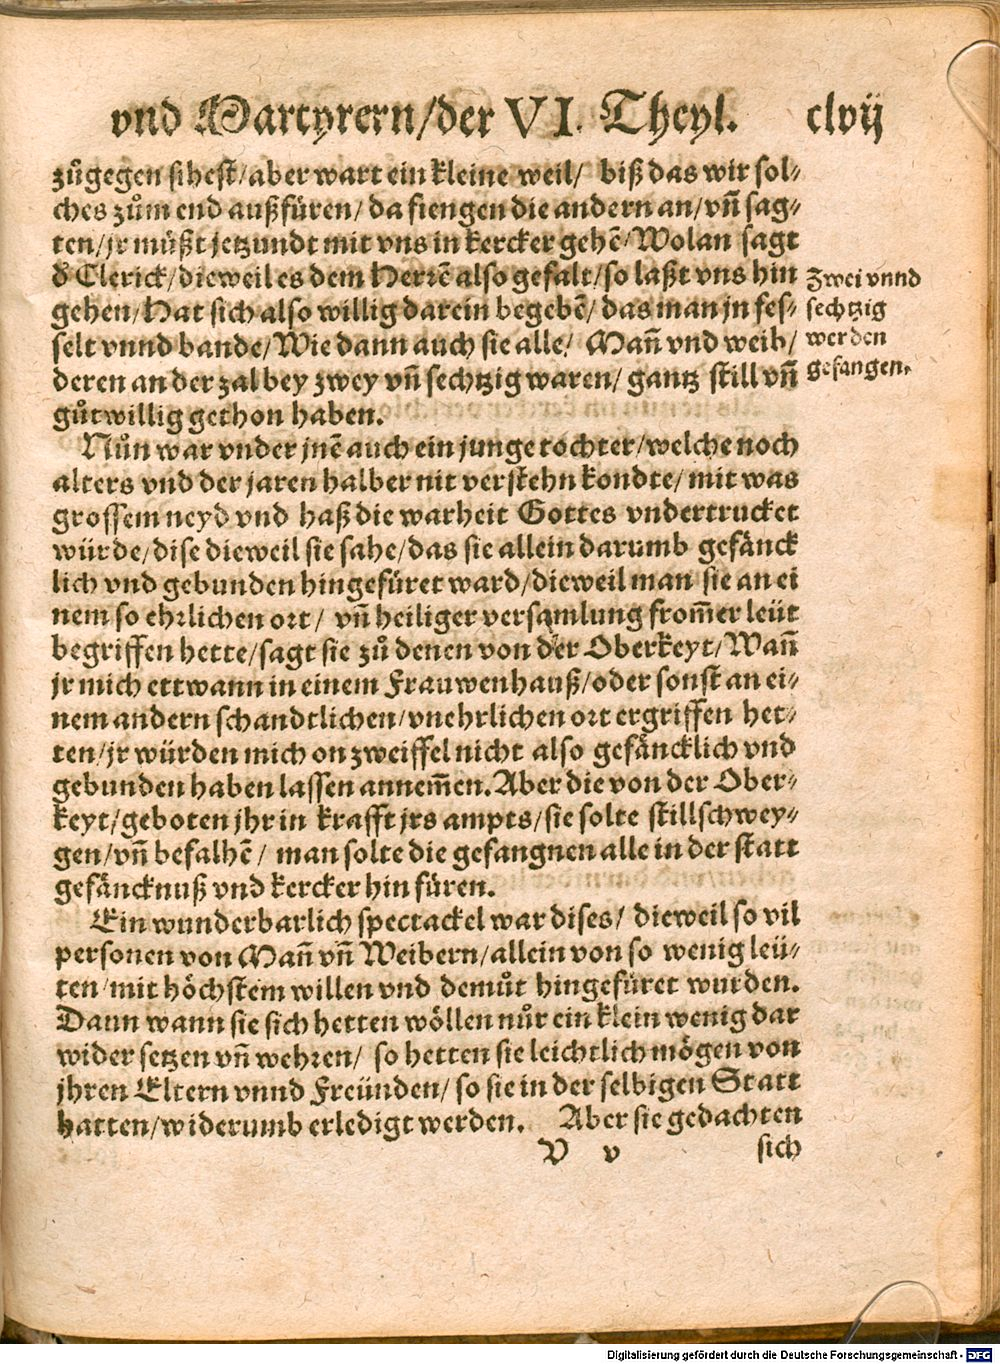 vnd Martyrern/der VI. Theyl. clvij
zůgegen sihest/aber wart ein kleine weil/ biß das wir sol⸗
ches zům end außfüren/ da fiengen die andern an/vñ sag⸗
ten/jr müßt jetzundt mit vns in kercker gehẽ/Wolan sagt
d̕ Clerick/dieweil es dem Herrẽ also gefalt/so laßt vns hin
gehen/Hat sich also willig darein begebẽ/das man jn fes⸗
selt vnnd bande/Wie dann auch sie alle/ Mañ vnd weib/
deren an der zal bey zwey vñ sechtzig waren/ gantz still vñ
gůtwillig gethon haben.
Zwei vnnd
sechtzig
werden
gefangen.
Nůn war vnder jnẽ auch ein junge tochter/welche noch
alters vnd der jaren halber nit verstehn kondte/ mit was
grossem neyd vnd haß die warheit Gottes vndertrucket
würde/dise dieweil sie sahe/das sie allein darumb gefänck
lich vnd gebunden hingefüret ward/dieweil man sie an ei
nem so ehrlichen ort/ vñ heiliger versamlung from̃er leüt
begriffen hette/sagt sie zů denen von der Oberkeyt/Wañ
jr mich ettwann in einem Frauwenhauß/oder sonst an ei⸗
nem andern schandtlichen/vnehrlichen ort ergriffen het⸗
ten/jr würden mich on zweiffel nicht also gefäncklich vnd
gebunden haben lassen annem̃en. Aber die von der Ober⸗
keyt/geboten jhr in krafft jrs ampts/sie solte stillschwey⸗
gen/vñ befalhẽ/ man solte die gefangnen alle in der statt
gefäncknuß vnd kercker hin füren.
Ein wunderbarlich spectackel war dises/ dieweil so vil
personen von Mañ vñ Weibern/allein von so wenig leü⸗
ten/mit höchstem willen vnd demůt hingefüret wurden.
Dann wann sie sich hetten wöllen nůr ein klein wenig dar
wider setzen vñ wehren/ so hetten sie leichtlich mögen von
jhren Eltern vnnd Freünden/ so sie in der selbigen Statt
hatten/widerumb erledigt werden. Aber sie gedachten
V v sich
Digitalisierung gefördert durch die Deutsche Forschungsgemeinschaft - DFG